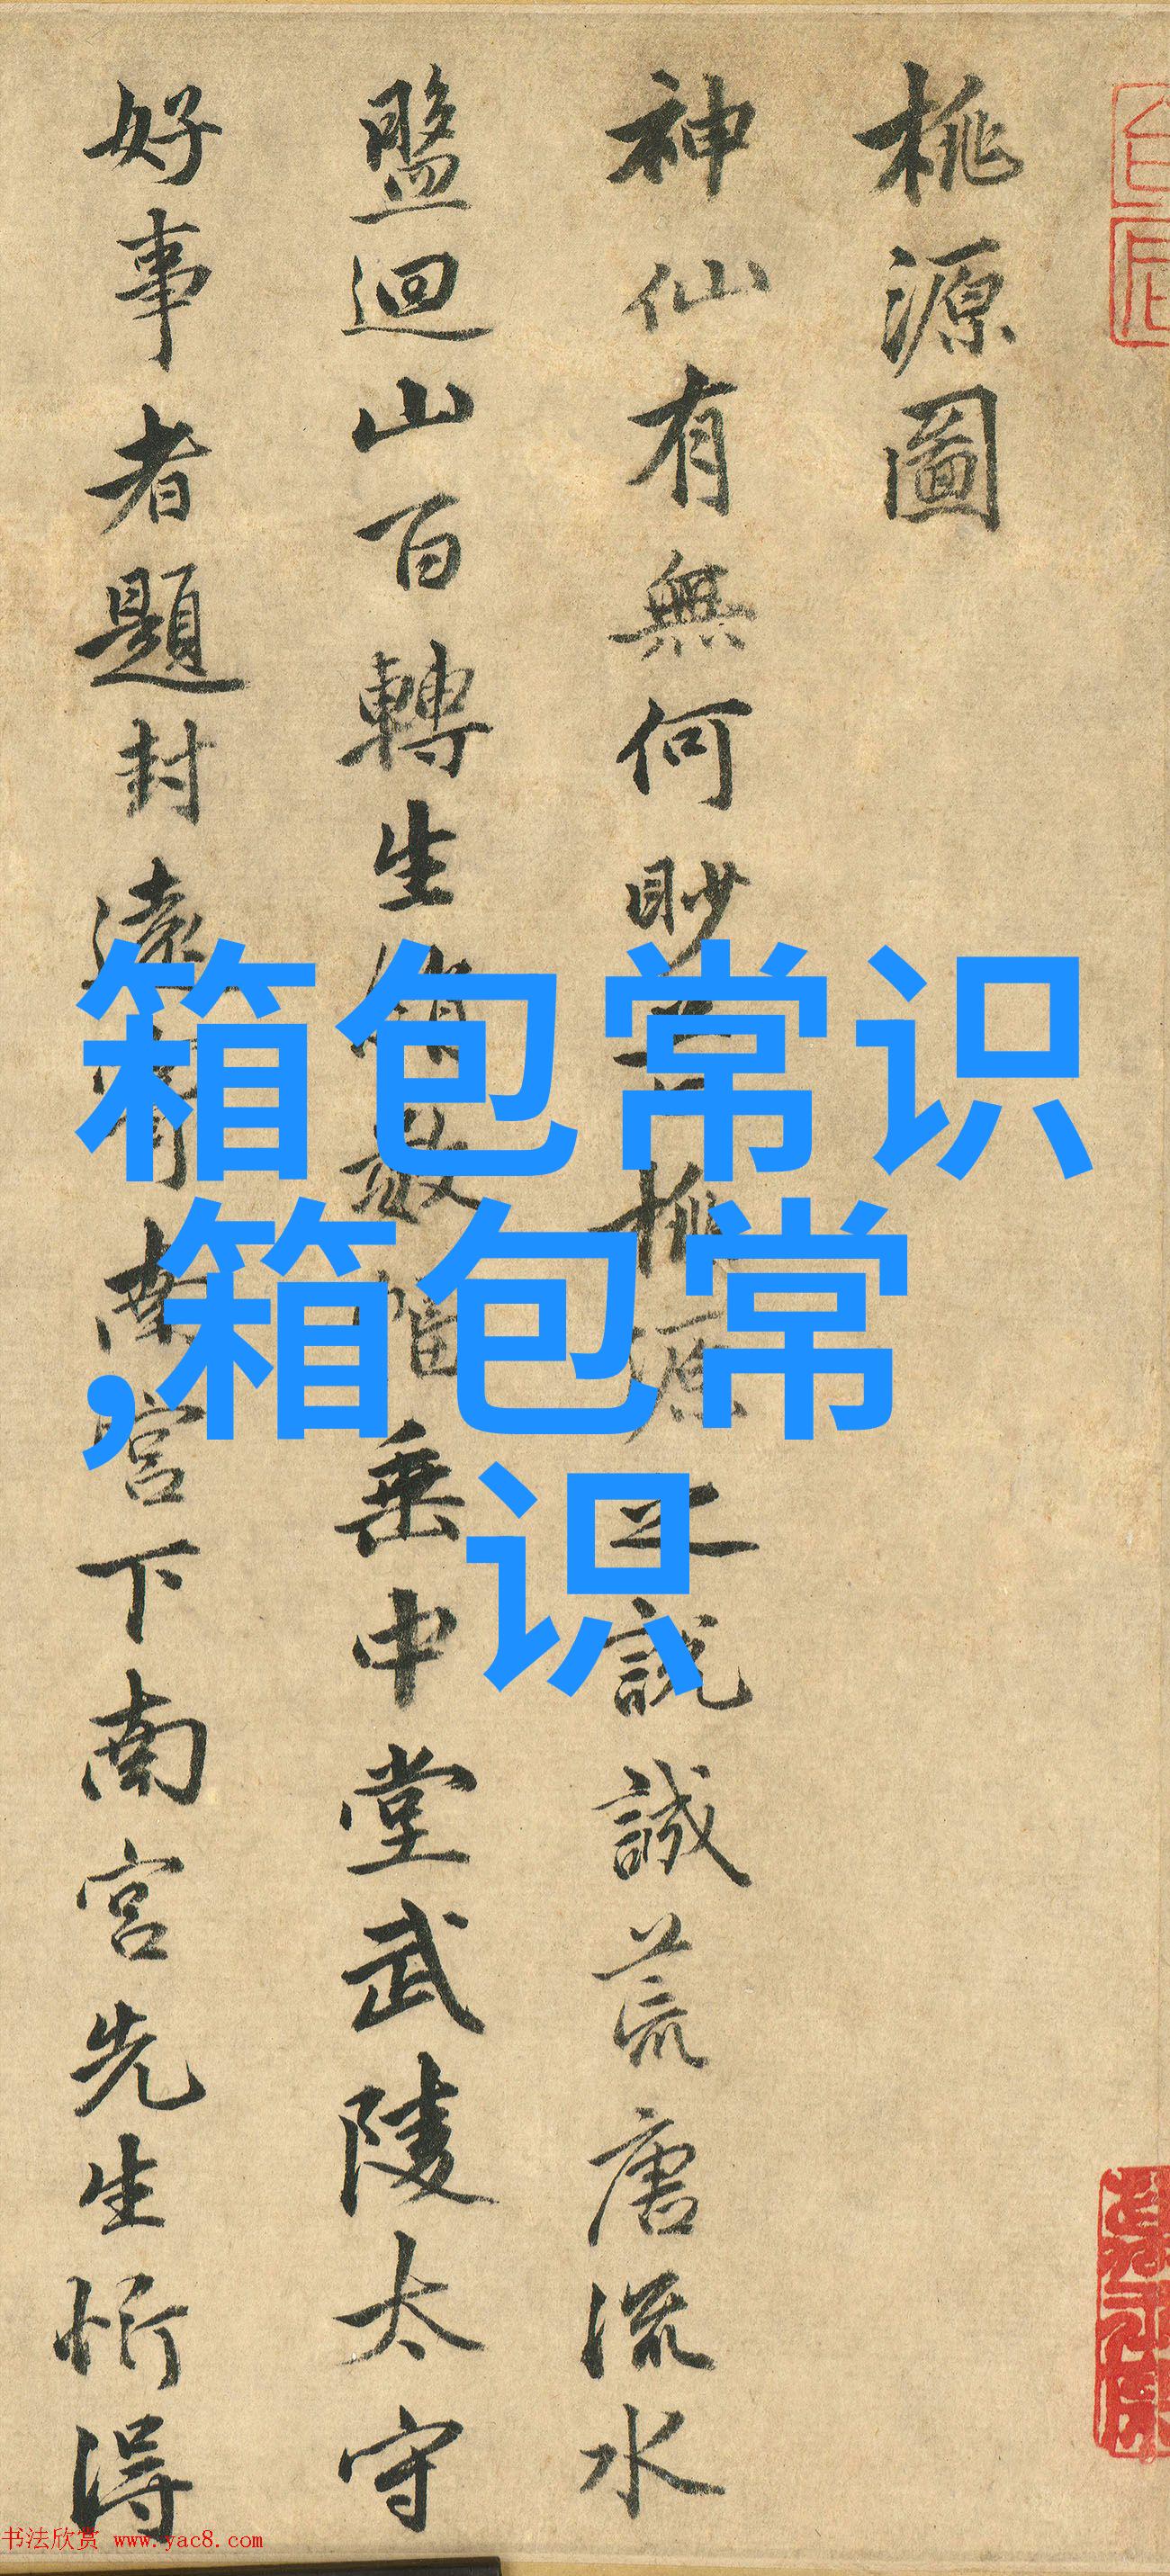 桃源圖
神仙有無何眇芒桃源之說誠荒唐流水
盤迴山百轉生綃數幅垂中堂武陵太守
好事者題封遠寄南宮下南宮先生忻得
箱包常识
,箱包常
识
书法欣赏 www.yac8.com